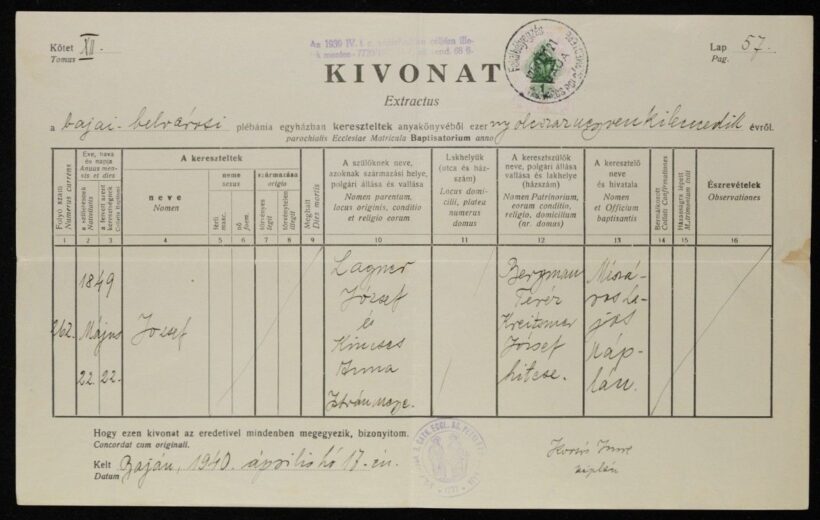 Kötet XII.
Tomus
Lap 57.
Pag.
KIVONAT
Extractus
a bajai-belvárosi plébánia egyházban kereszteltek anyakönyvéből ezer nyolcszáznegyvenkilencedik évről.
parochialis Ecclesiae Matricula Baptisatorium anno
Folyó szám
Numerus currens
Év, hava és napja
Annus mensis et dies
a születésnek
Nativitatis
a fenteírt szent keresztségnek
Collati Baptismi
A kereszteltek
neve
Nomen
neme
sexus
férfi
masc.
nő
foem.
származása
origo
törvényes
legit
törvénytelen
illegit
Meghalt
Dies mortis
A szülőknek neve, azoknak származási helye, polgári állása és vallása
Nomen parentum, locus originis, conditio et religio eorum
Lakhelyük (utca és házszám)
Locus domicilii, platea numerus domus
A keresztszülők neve, polgári állása vallása és lakhelye (házszám)
Nomen Patrinorium, eorum conditio, religio, domicilium (nr. domus)
A keresztelő neve és hivatala
Nomen et Officium baptisantis
Bérmálkozott
Collate Confirmationes
Házasságra lépett
Matrimonium iniit
Észrevételek
Observationes
1 2 3 4 5 6 7 8 9 10 11 12 13 14 15 16
262.
1849
Május
22. 22.
József
Lagner
József
és
Kincses
Anna
Bergman
Teréz
Kreitsmer
József
hitese.
Káp-
lán.
Hogy ezen kivonat az eredetivel mindenben megegyezik, bizonyítom.
Concordat cum originali.
Kelt Baján, 1940. április hó 17-én.
Datum
káplán